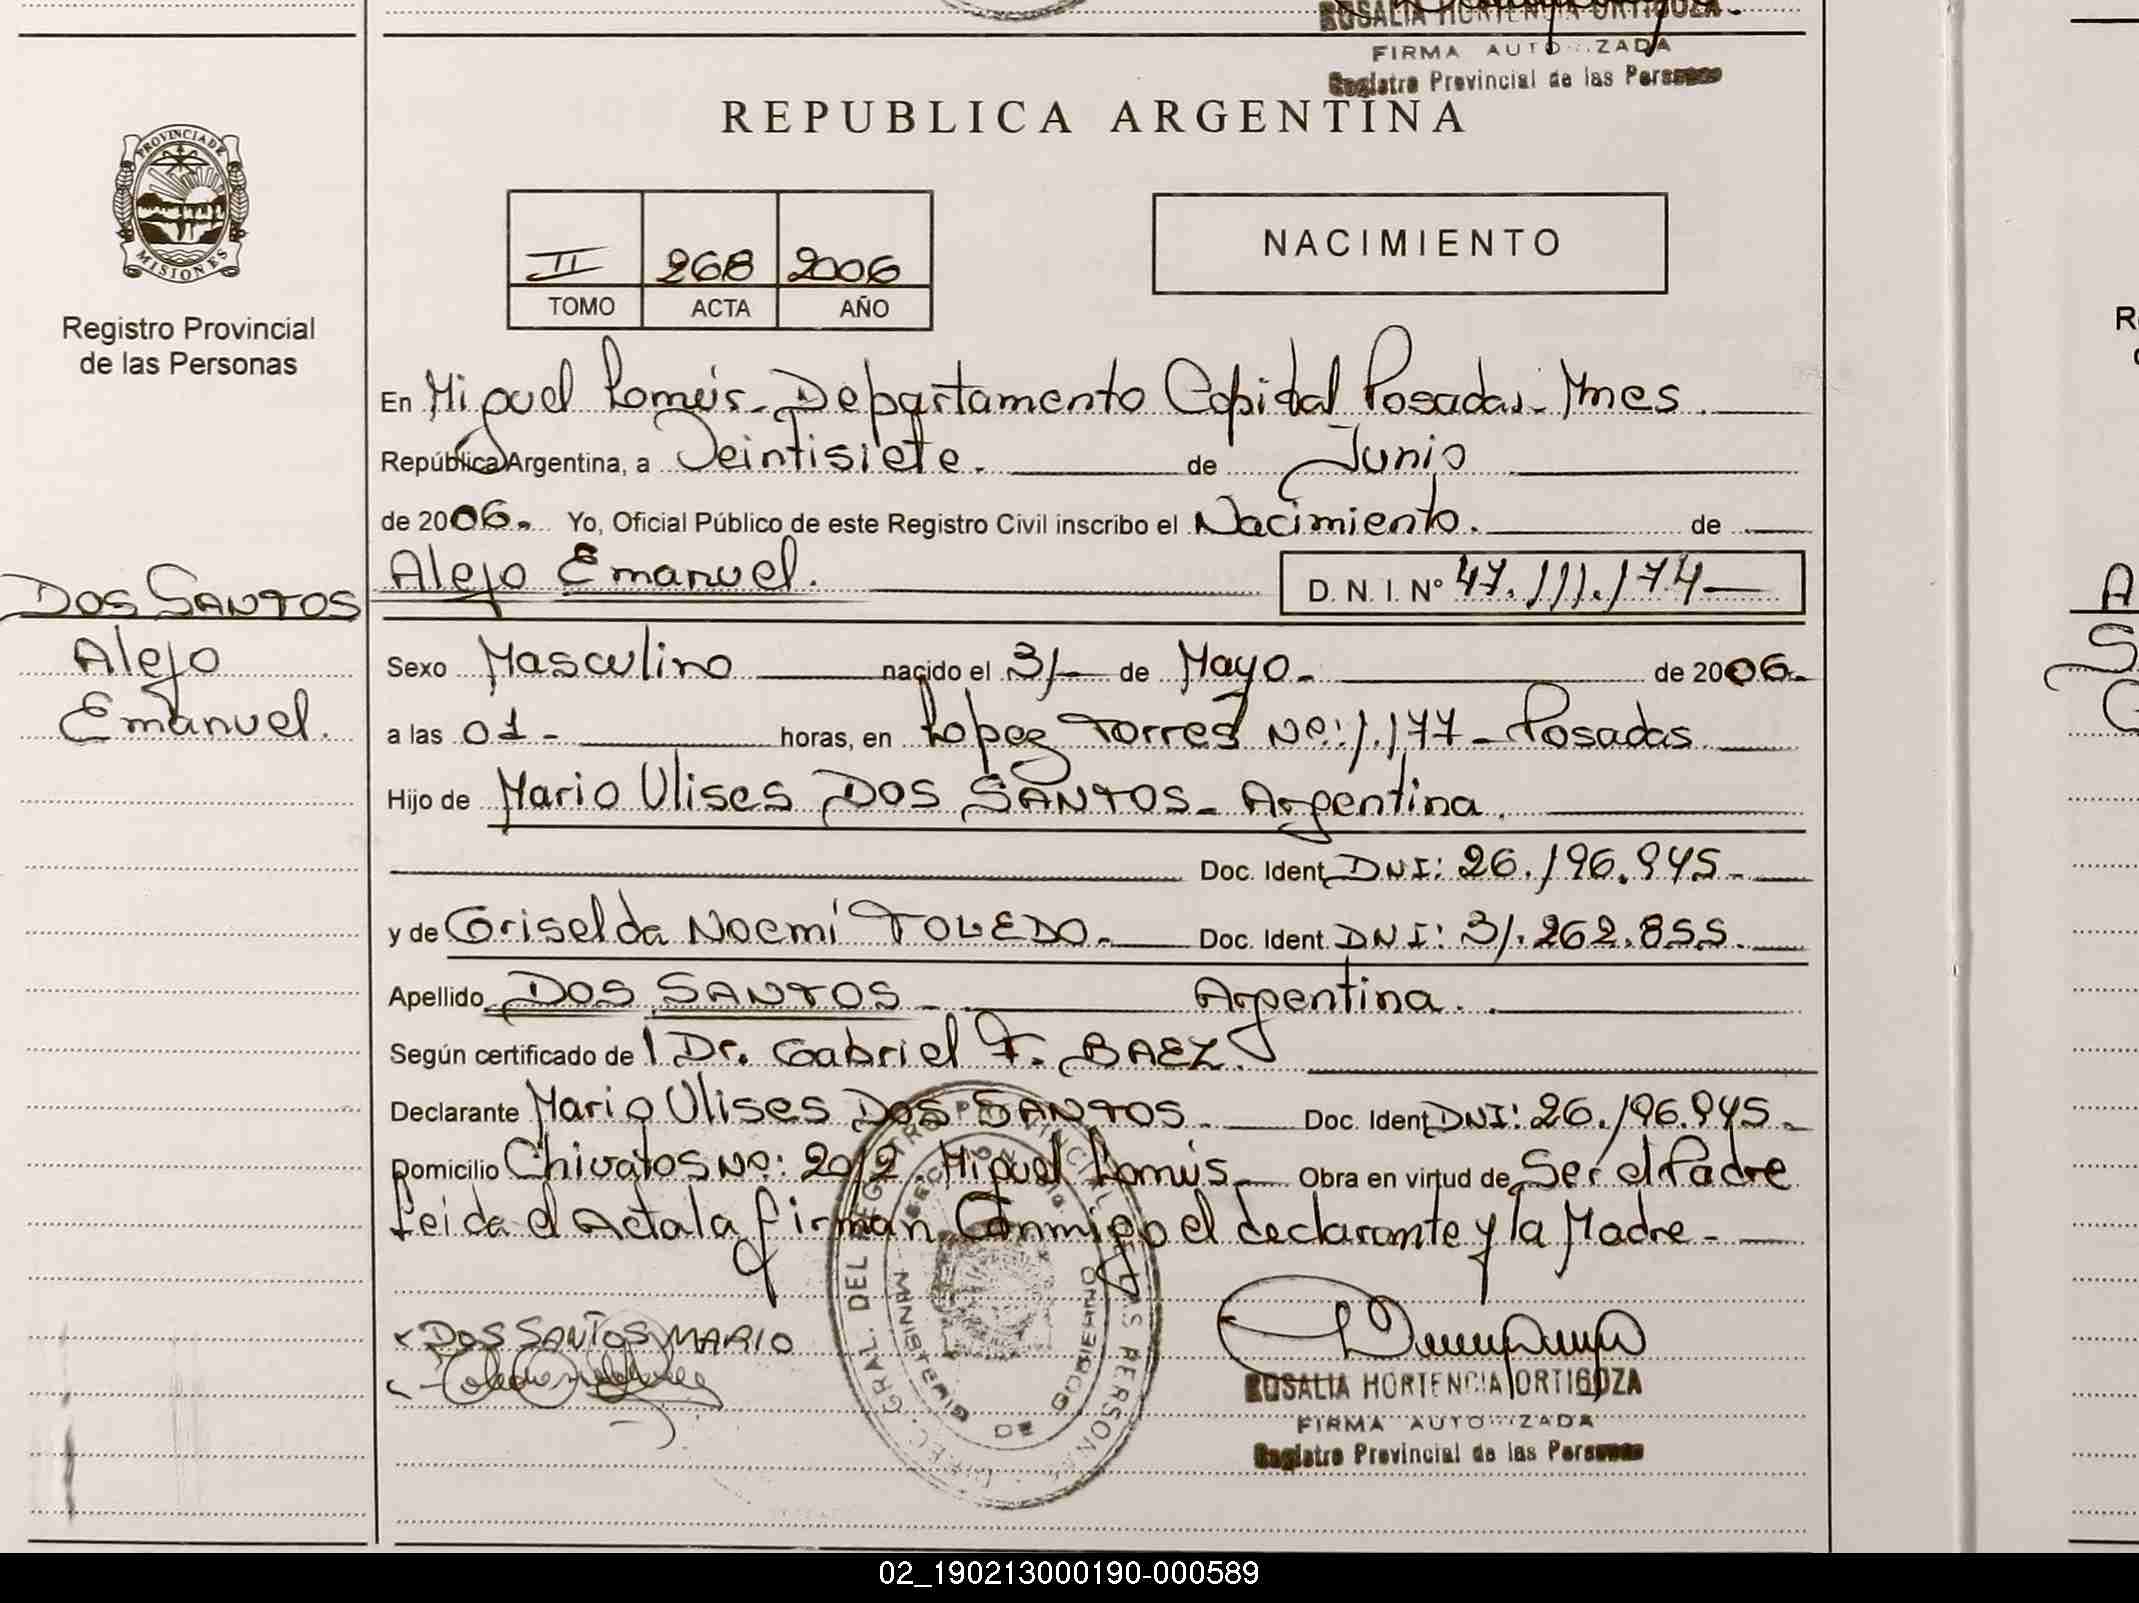 ROSALIA HORTENCIA ORTIGOZA
FIRMA AUTORIZADA
Registro Provincial de las Personas
REPUBLICA ARGENTINA
PROVINCIA DE
MISIONES
Registro Provincial
de las Personas
II 268 2006
TOMO ACTA AÑO
NACIMIENTO
En Miguel Lanús - Departamento Capital Posadas - Mnes.
República Argentina, a Veintisiete. de Junio
de 2006. Yo, Oficial Público de este Registro Civil inscribo el Nacimiento. de
Alejo Emanuel. D. N. I. Nº 47.111.174-
DOS SANTOS
Alejo
Emanuel.
Sexo Masculino nacido el 31 de Mayo- de 2006-
a las 01- horas, en Lopez Torres Nº: 1.177 - Posadas
Hijo de Mario Ulises DOS SANTOS - Argentina.
Doc. Ident. DNI: 26.196.945-
y de Griselda Noemí TOLEDO- Doc. Ident. DNI: 31.262.855.
Apellido DOS SANTOS- Argentina.
Según certificado de l Dr. Gabriel F. BAEZ.
Declarante Mario Ulises DOS SANTOS- Doc. Ident. DNI: 26.196.945-
Domicilio Chivatos Nº: 2012. Miguel Lanús- Obra en virtud de Ser el Padre
Leida el Acta la firman Conmigo el declarante y la Madre-
DOS SANTOS MARIO
DIREC. GRAL. DEL REGISTRO PROVINCIAL DE LAS PERSONAS
MINISTERIO DE GOBIERNO
ROSALIA HORTENCIA ORTIGOZA
FIRMA AUTORIZADA
Registro Provincial de las Personas
02_190213000190-000589